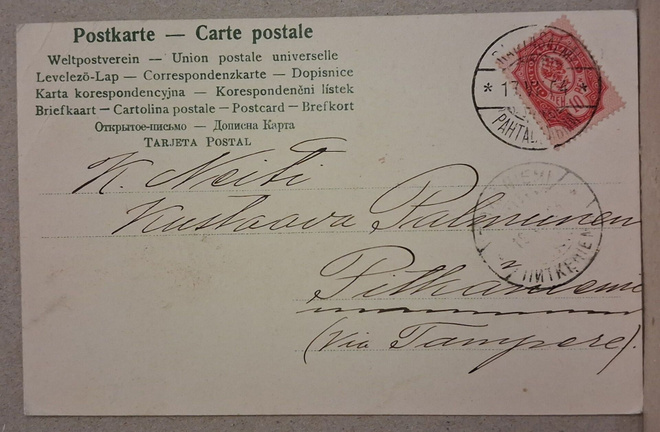 Postkarte — Carte postale
Weltpostverein — Union postale universelle
Levelező-Lap — Correspondenzkarte — Dopisnice
Karta korespondencyjna — Korespondenční lístek
Briefkaart — Cartolina postale — Postcard — Brefkort
Открытое-письмо — Дописна Карта
Tarjeta Postal
K. Neiti
Kustaava Palmunen
Pitkäniemi
(Via Tampere).